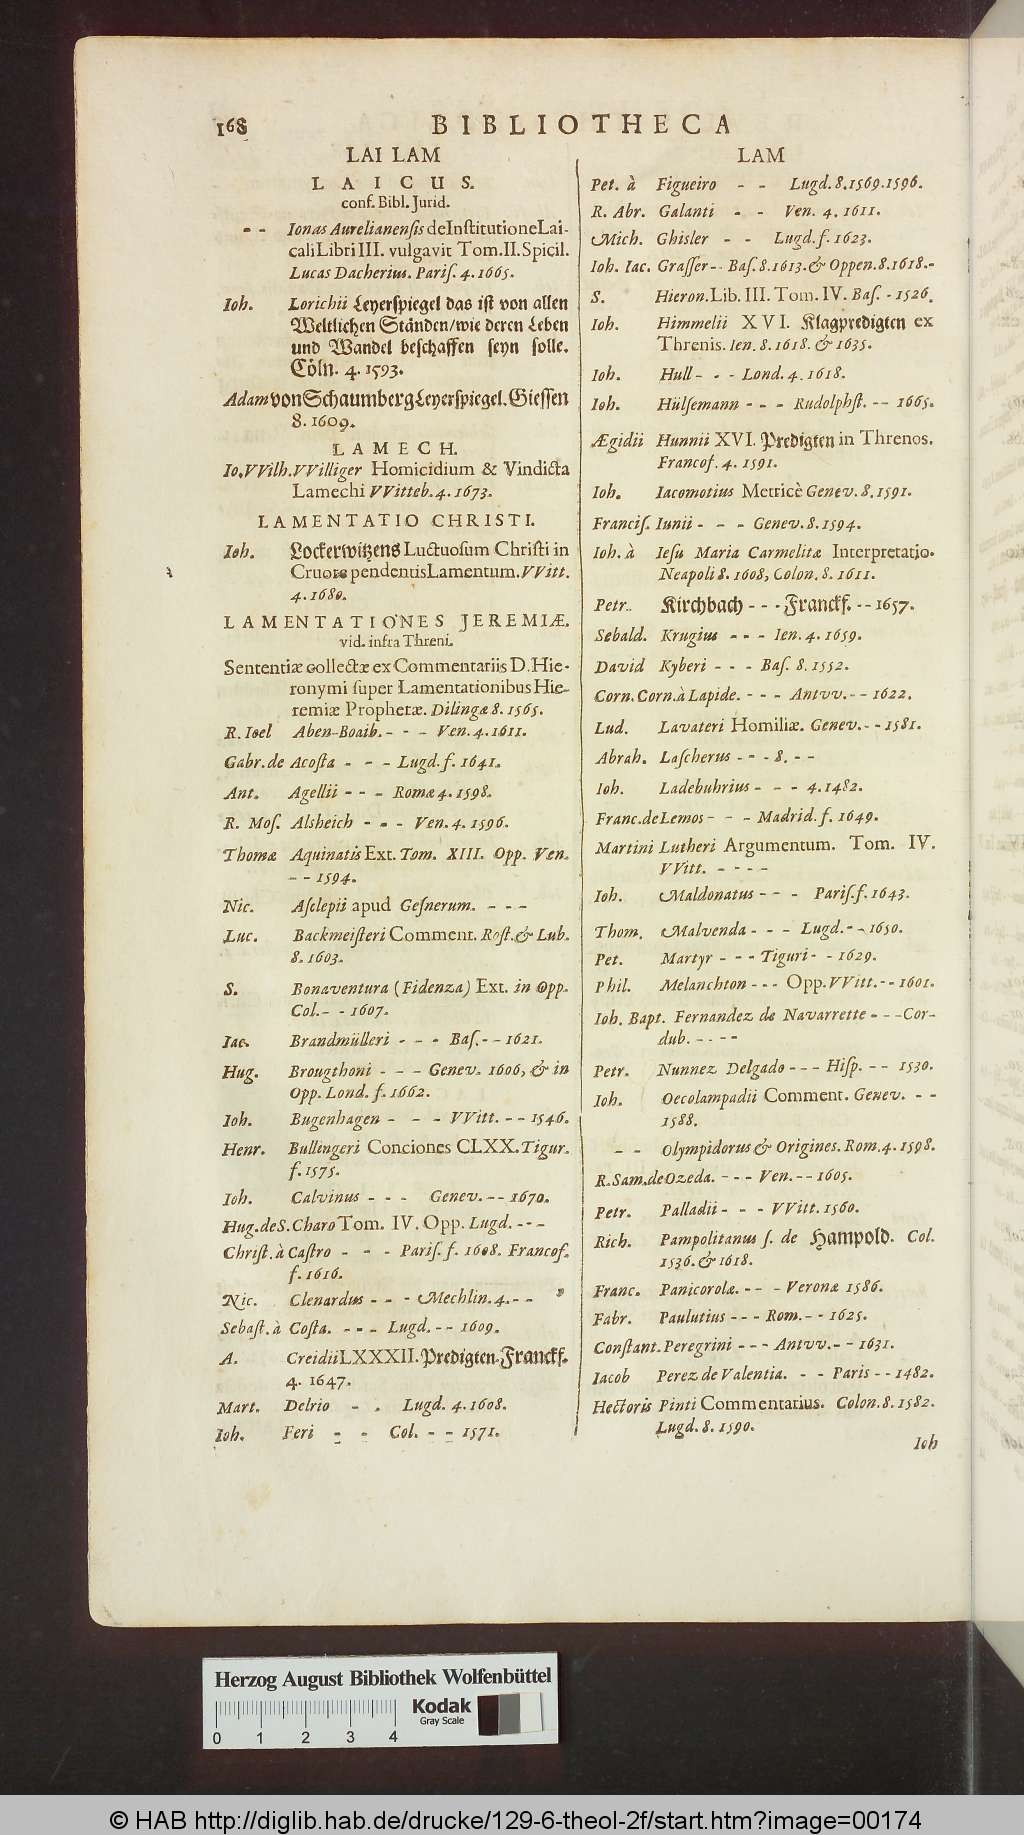 168
BIBLIOTHECA
LAI LAM
LAICUS.
conf. Bibl. Jurid.
- - Ionas Aurelianensis de Institutione Lai-
cali Libri III. vulgavit Tom. II. Spicil.
Lucas Dacherius. Paris. 4. 1665.
Ioh. Lorichii Leyerspiegel das ist von allen
Weltlichen Ständen/wie deren Leben
und Wandel beschaffen seyn solle.
Cöln. 4. 1593.
Adam von Schaumberg Leyerspiegel. Giessen
8. 1609.
LAMECH.
Io. VVilh. VVilliger Homicidium & Vindicta
Lamechi VVitteb. 4. 1673.
LAMENTATIO CHRISTI.
Ioh. Lockerwitzens Luctuosum Christi in
Cruore pendentis Lamentum. VVitt.
4. 1680.
LAMENTATIONES JEREMIÆ.
vid. infra Threni.
Sententiæ collectæ ex Commentariis D. Hie-
ronymi super Lamentationibus Hie-
remiæ Prophetæ. Dilingæ 8. 1565.
R. Ioel Aben-Boaib. - - - Ven. 4. 1611.
Gabr. de Acosta - - - Lugd. f. 1641.
Ant. Agellii - - - Romæ 4. 1598.
R. Mos. Alsheich - - - Ven. 4. 1596.
Thomæ Aquinatis Ext. Tom. XIII. Opp. Ven.
- - 1594.
Nic. Asclepii apud Gesnerum. - - -
Luc. Backmeisteri Comment. Rost. & Lub.
8. 1603.
S. Bonaventura (Fidenza) Ext. in Opp.
Col. - - 1607.
Iac. Brandmülleri - - - Bas. - - 1621.
Hug. Brougthoni - - - Genev. 1606, & in
Opp. Lond. f. 1662.
Ioh. Bugenhagen - - - VVitt. - - 1546.
Henr. Bullingeri Conciones CLXX. Tigur.
f. 1575.
Ioh. Calvinus - - - Genev. - - 1670.
Hug. de S. Charo Tom. IV. Opp. Lugd. - - -
Christ. à Castro - - - Paris. f. 1608. Francof.
f. 1616.
Nic. Clenardus - - - Mechlin. 4. - -
Sebast. à Costa. - - - Lugd. - - 1609.
A. Creidii LXXXII. Predigten. Franckf.
4. 1647.
Mart. Delrio - . Lugd. 4. 1608.
Ioh. Feri - - Col. - - 1571.
LAM
Pet. à Figueiro - - Lugd. 8. 1569. 1596.
R. Abr. Galanti - - Ven. 4. 1611.
Mich. Ghisler - - Lugd. f. 1623.
Ioh. Iac. Grasser - - Bas. 8. 1613. & Oppen. 8. 1618. -
S. Hieron. Lib. III. Tom. IV. Bas. - 1526.
Ioh. Himmelii XVI. Klagpredigten ex
Threnis. Ien. 8. 1618. & 1635.
Ioh. Hull - - - Lond. 4. 1618.
Ioh. Hülsemann - - - Rudolphst. - - 1665.
Ægidii Hunnii XVI. Predigten in Threnos.
Francof. 4. 1591.
Ioh. Iacomotius Metricè Genev. 8. 1591.
Francis. Iunii - - - Genev. 8. 1594.
Ioh. à Iesu Maria Carmelitæ Interpretatio.
Neapoli 8. 1608, Colon. 8. 1611.
Petr. Kirchbach - - - Franckf. - - 1657.
Sebald. Krugius - - - Ien. 4. 1659.
David Kyberi - - - Bas. 8. 1552.
Corn. Corn. à Lapide. - - - Antvv. - - 1622.
Lud. Lavateri Homiliæ. Genev. - - 1581.
Abrah. Lascherus - - - 8. - -
Ioh. Ladebuhrius - - - 4. 1482.
Franc. de Lemos - - - Madrid. f. 1649.
Martini Lutheri Argumentum. Tom. IV.
VVitt. - - - -
Ioh. Maldonatus - - - Paris. f. 1643.
Thom. Malvenda - - - Lugd. - - 1650.
Pet. Martyr - - - Tiguri - - 1629.
Phil. Melanchton - - - Opp. VVitt. - - 1601.
Ioh. Bapt. Fernandez de Navarrette - - - Cor-
dub. - - - -
Petr. Nunnez Delgado - - - Hisp. - - 1530.
Ioh. Oecolampadii Comment. Genev. - -
1588.
- - Olympidorus & Origines. Rom. 4. 1598.
R. Sam. de Ozeda. - - - Ven. - - 1605.
Petr. Palladii - - - VVitt. 1560.
Rich. Pampolitanus s. de Hampold. Col.
1536. & 1618.
Franc. Panicorolæ. - - - Veronæ 1586.
Fabr. Paulutius - - - Rom. - - 1625.
Constant. Peregrini - - - Antvv. - - 1631.
Iacob Perez de Valentia. - - Paris - - 1482.
Hectoris Pinti Commentarius. Colon. 8. 1582.
Lugd. 8. 1590.
Ioh
Herzog August Bibliothek Wolfenbüttel
Kodak
Gray Scale
0 1 2 3 4
© HAB http://diglib.hab.de/drucke/129-6-theol-2f/start.htm?image=00174